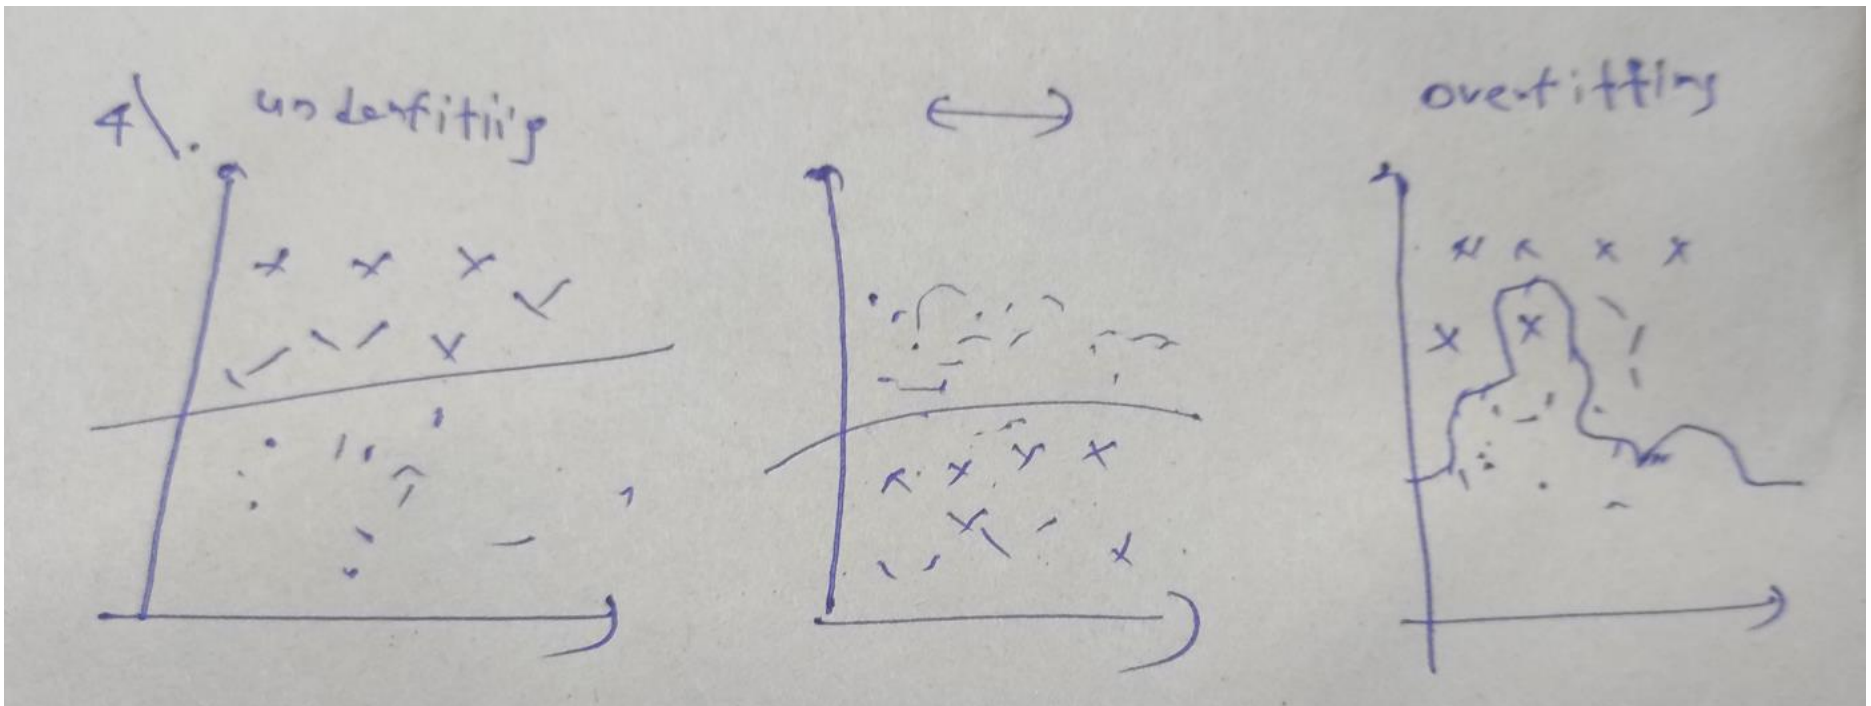 4\. underfitiig ⟷ overfitting